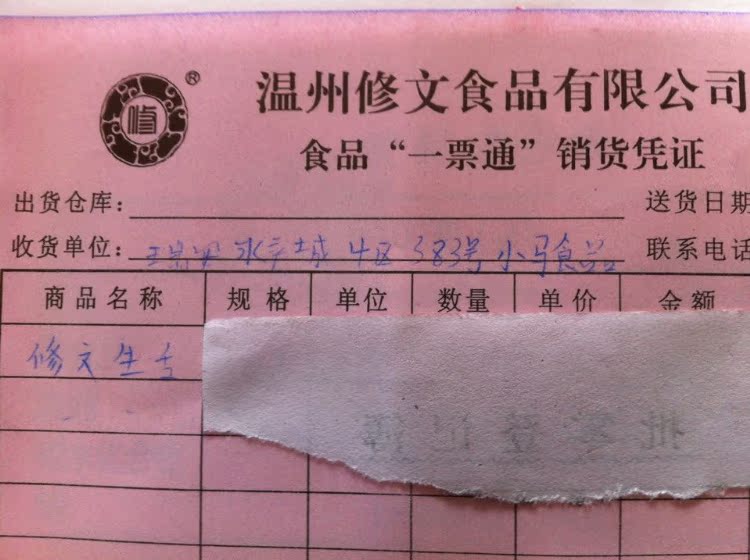 修®
温州修文食品有限公司
食品“一票通”销货凭证
出货仓库： 送货日期
收货单位：瑞安水产城4区383号小马食品 联系电话
商品名称 规格 单位 数量 单价 金额
修文生
批客登记簿